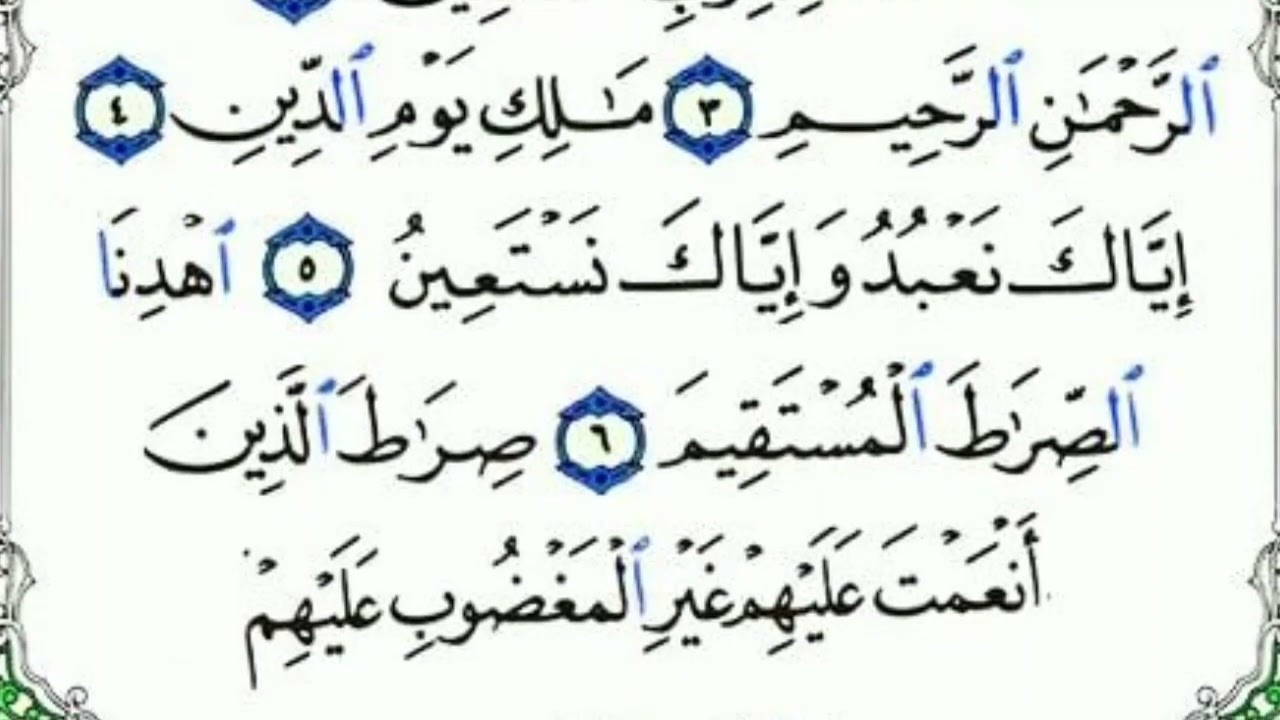 ٱلرَّحۡمَٰنِ ٱلرَّحِيمِ ٣ مَٰلِكِ يَوۡمِ ٱلدِّينِ ٤
إِيَّاكَ نَعۡبُدُ وَإِيَّاكَ نَسۡتَعِينُ ٥ ٱهۡدِنَا
ٱلصِّرَٰطَ ٱلۡمُسۡتَقِيمَ ٦ صِرَٰطَ ٱلَّذِينَ
أَنۡعَمۡتَ عَلَيۡهِمۡ غَيۡرِ ٱلۡمَغۡضُوبِ عَلَيۡهِمۡ